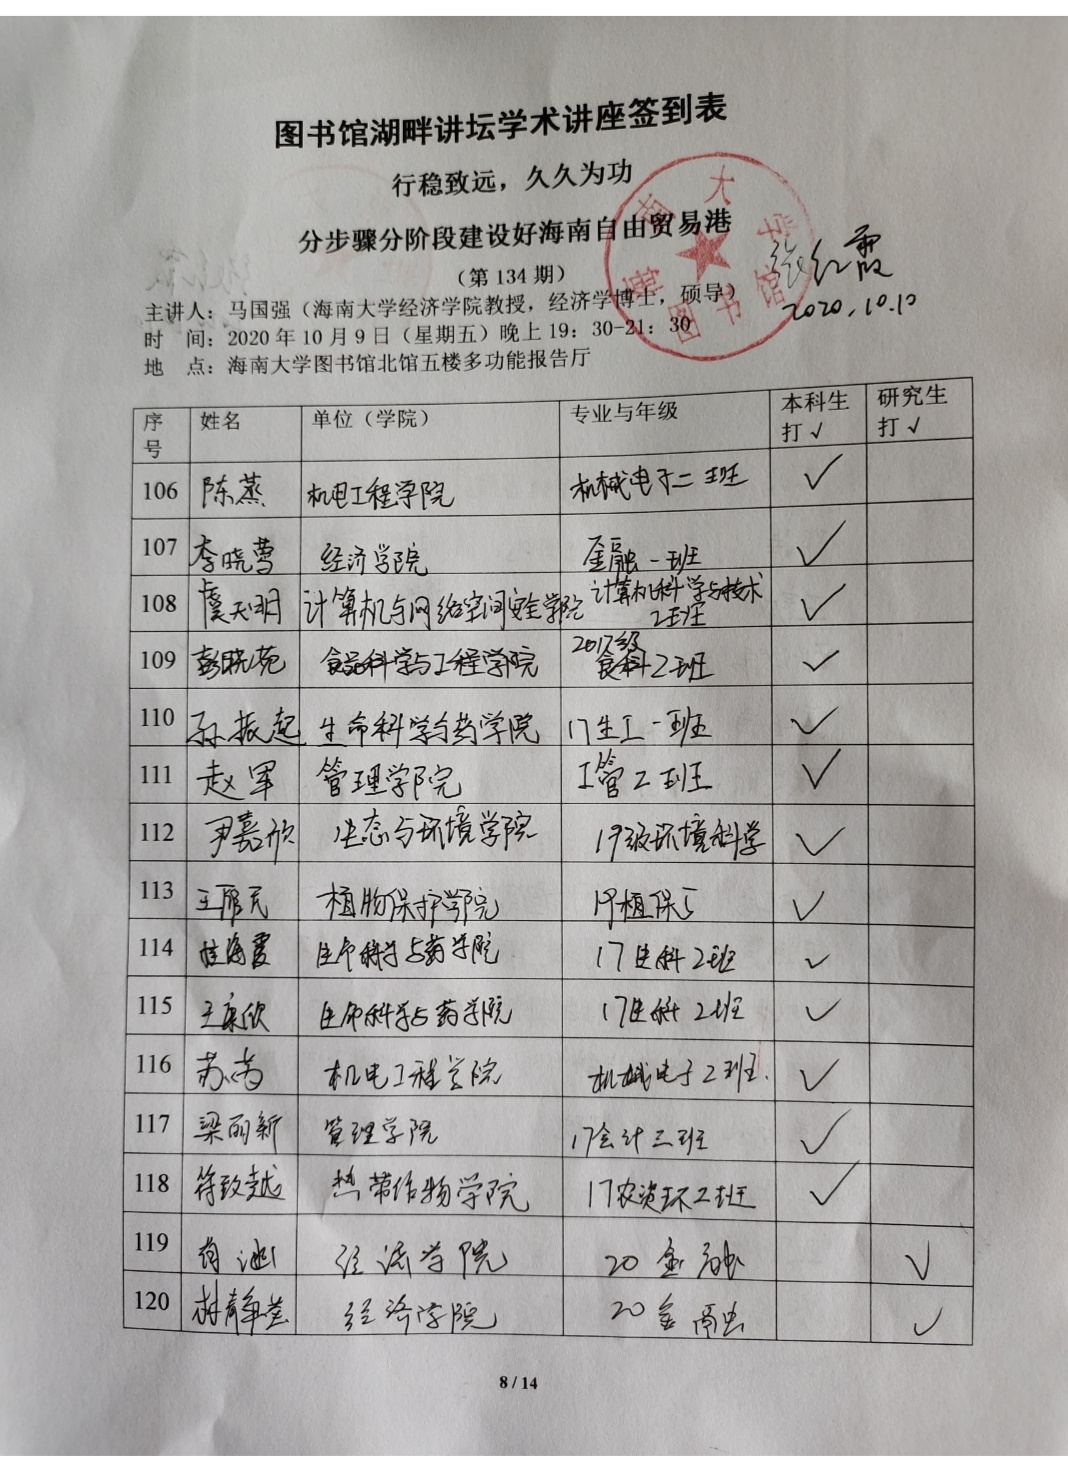 图书馆湖畔讲坛学术讲座签到表
行稳致远，久久为功
分步骤分阶段建设好海南自由贸易港
（第 134 期）
海南大学图书馆
张红霞
2020.10.10
主讲人：马国强（海南大学经济学院教授，经济学博士，硕导）
时 间：2020 年 10 月 9 日（星期五）晚上 19：30-21：30
地 点：海南大学图书馆北馆五楼多功能报告厅
序号 姓名 单位（学院） 专业与年级 本科生打√ 研究生打√
106 陈燕 机电工程学院 机械电子二班 √
107 李晓莺 经济学院 金融一班 √
108 虞天明 计算机与网络空间安全学院 计算机科学与技术2班 √
109 彭晓苑 食品科学与工程学院 2017级食科2班 √
110 孙振起 生命科学与药学院 17生工一班 √
111 赵军 管理学院 工管2班 √
112 尹嘉欣 生态与环境学院 19级环境科学 √
113 王雁民 植物保护学院 19植保 √
114 海霞 生命科学与药学院 17生科2班 √
115 王康欣 生命科学与药学院 17生科2班 √
116 苏 机电工程学院 机械电子2班. √
117 梁丽新 管理学院 17会计三班 √
118 符致越 热带作物学院 17农资环2班 √
119 经济学院 20金融 √
120 林静 经济学院 20金融 √
8 / 14